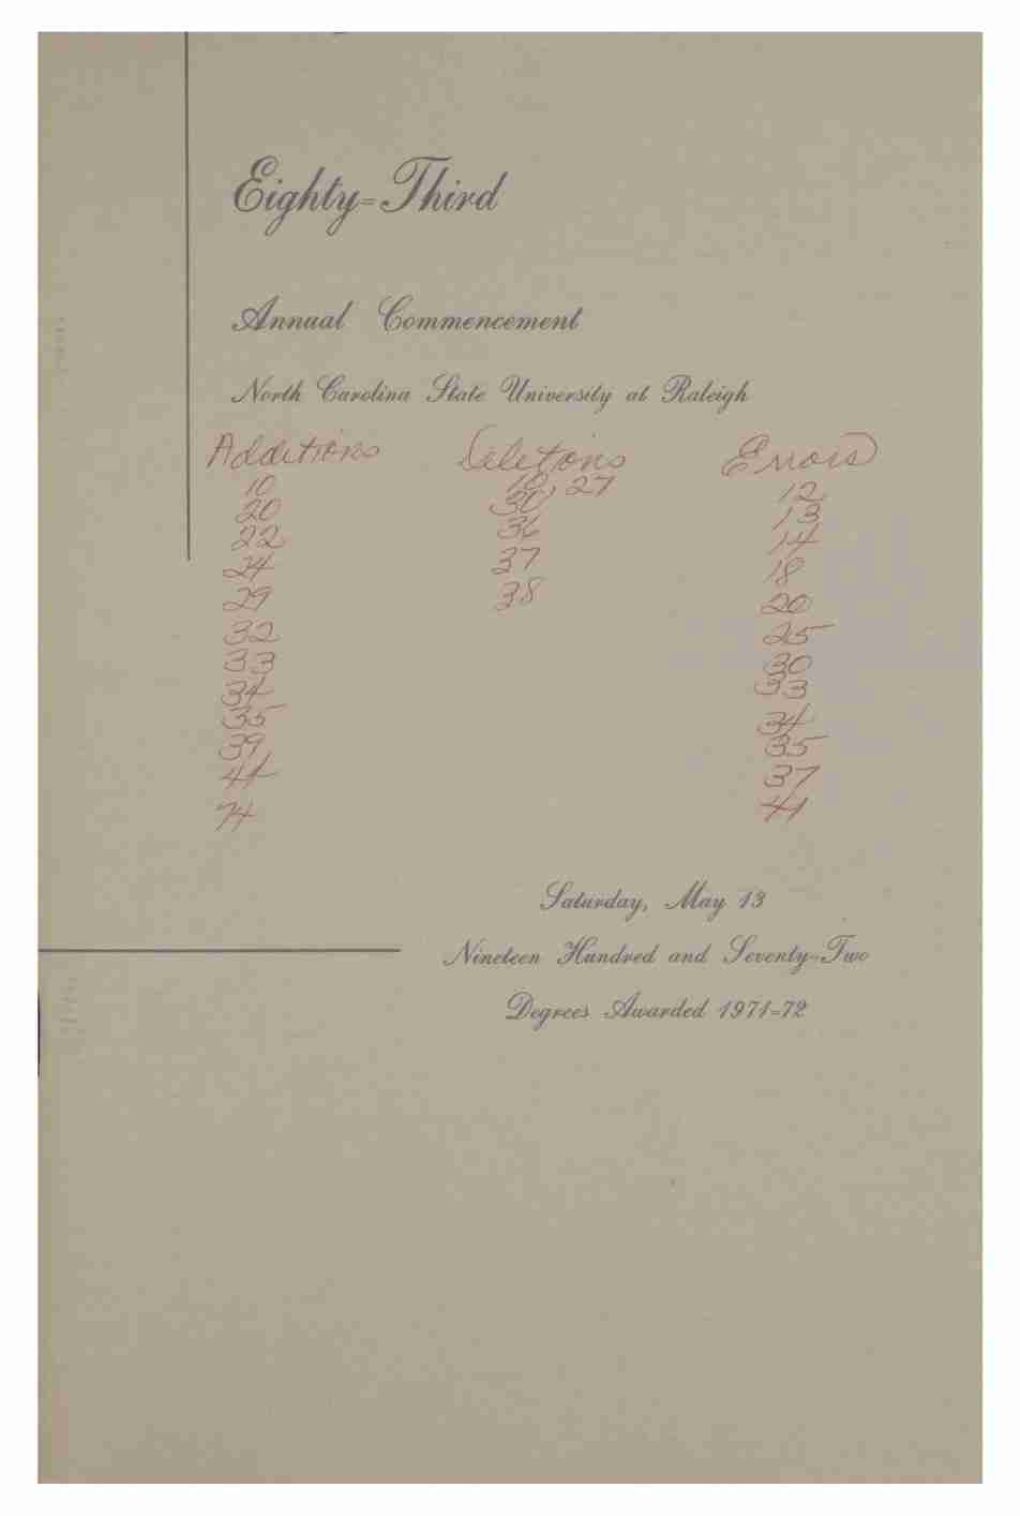 Eighty-Third
Annual Commencement
North Carolina State University at Raleigh
Additions Deletions Errors
10 18, 27 12
20 30 13
22 36 14
24 37 18
29 38 20
32 25
33 30
34 33
35 34
39 35
41 37
74 41
Saturday, May 13
Nineteen Hundred and Seventy-Two
Degrees Awarded 1971-72